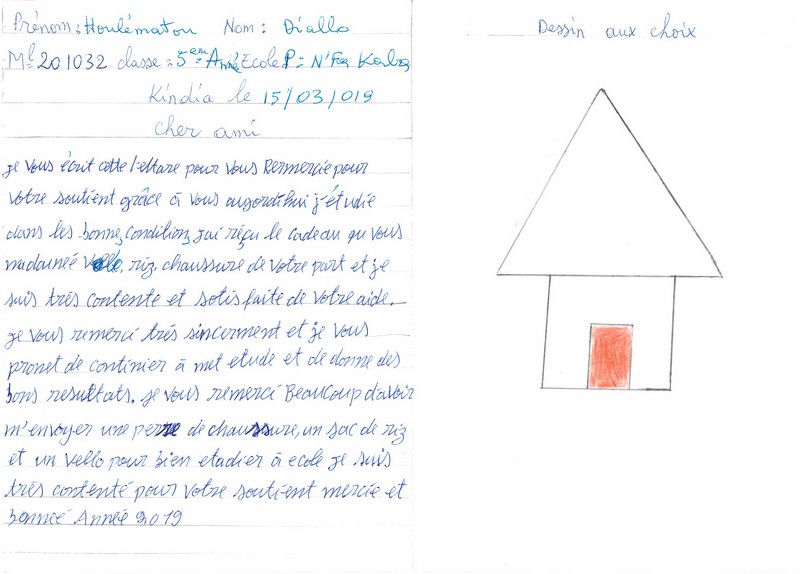 Prénom : Houlématou Nom : Diallo
Mle 201032 classe : 5em Année Ecole P : N'Fa Kalas
Kindia le 15/03/019
cher ami
je vous écrit cette lettare pour vous Remercie pour
votre soutient grâce à vous aujordihui j'étudie
dans les bonne condition, j'ai réçu le cadeau qu vous
madainéé Vello, riz, chaussure de votre part et je
suis très contente et sotisfaite de votre aide.
je vous remerci très sincerment et je vous
promet de continier à met etude et de donne des
bons resultats. je vous remerci Beaucoup d'avoir
m'envoyer une perre de chaussure, un sac de riz
et un vello pour bien etadier à ecole je suis
très contenté pour votre soutient mercie et
bonneé Année 2019
Dessin aux choix